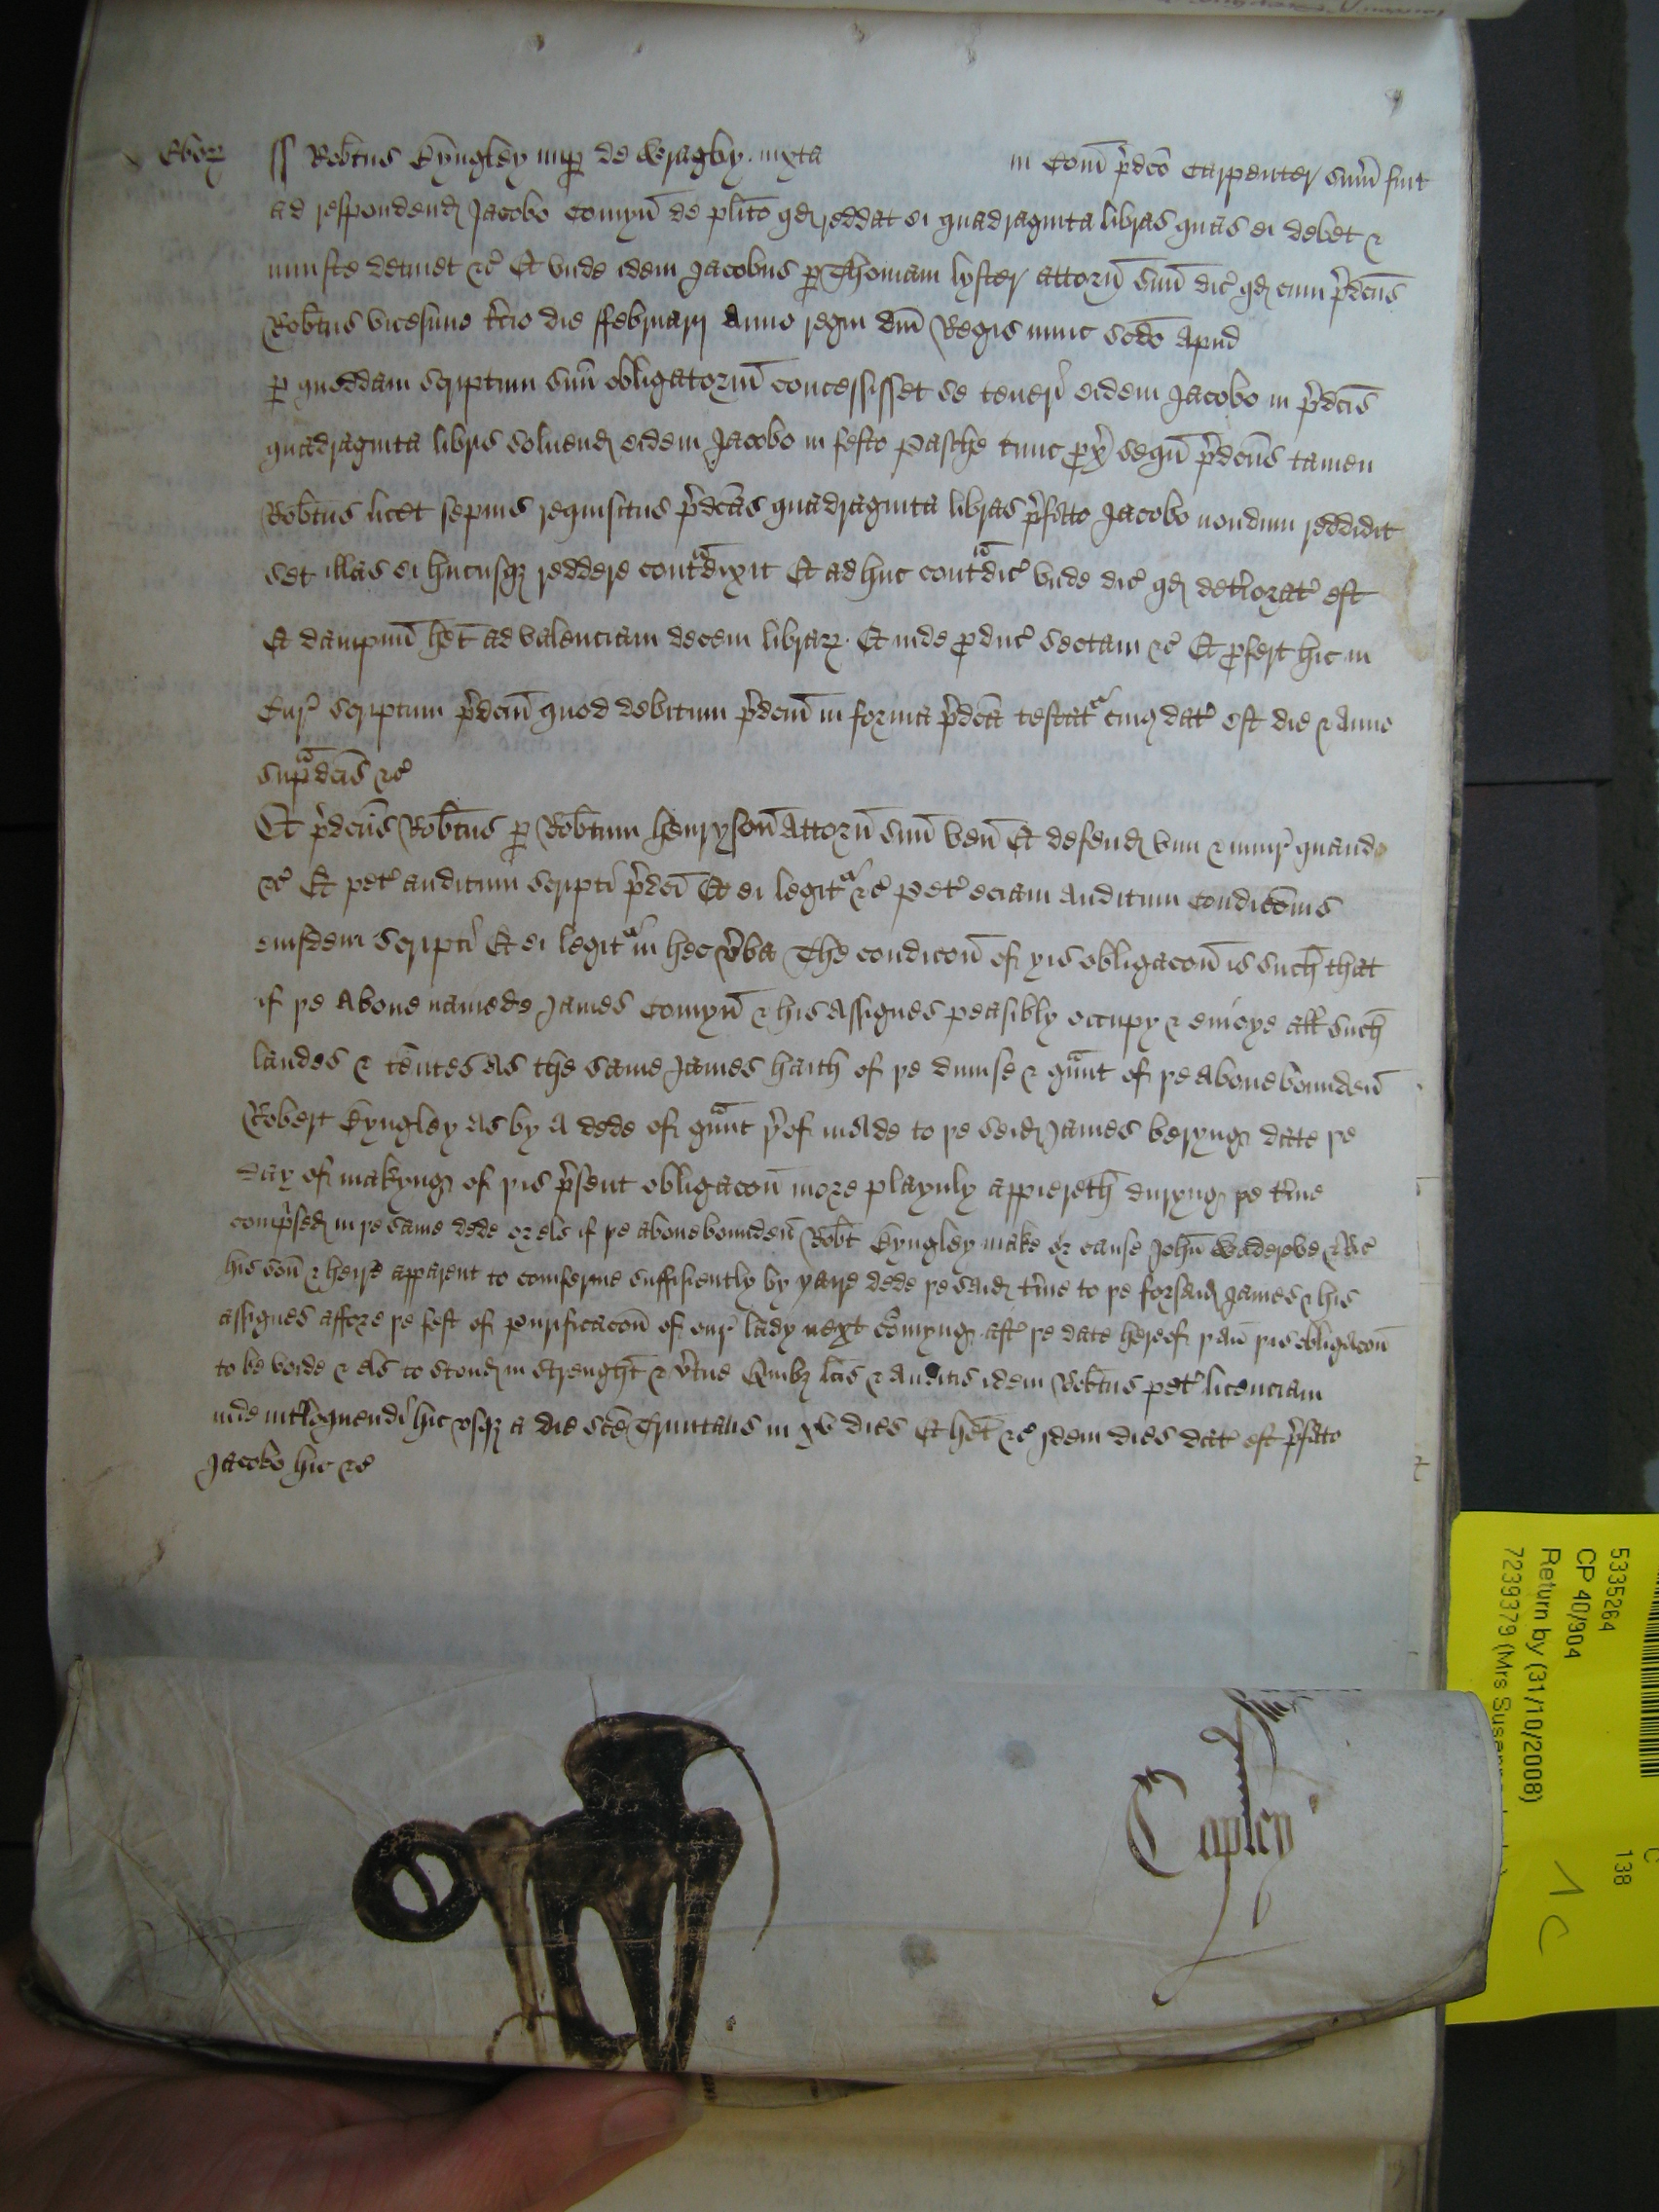 Ebor ss Robtus Kyngley nup de Wragby iuxta in Com pdco Carpenter sum fuit
ad respondend Jacobo Comyn de plito qd reddat ei quadraginta libras quas ei debet &
iniuste detinet &c Et unde idem Jacobus p Thomam lyster attorn suu dic qd cum pdcus
Robtus vicesimo tcio die ffebruarij Anno regni dni Regis nunc scdo Apud
p quoddam scriptum suu obligatoriu concessisset se teneri eidem Jacobo in pdcis
quadraginta libris soluend eidem Jacobo in festo Pasche tunc px sequ pdcus tamen
Robtus licet sepius requisitus pdcas quadraginta libras pfato Jacobo nondum reddidit
set illas ei hucusq reddere contadixit Et adhuc contadic unde dic qd detioratus est
Et dampnu het ad valenciam decem librar Et inde producit sectam &c Et profert hic in
Cur scriptum pdcm quod debitum pdcm in forma pdca testatr cuius dat est die & Anno
supadcis &c
Et pdcus Robtus p Robtum henryson Attorn suu ven Et defend vim & iniur quando
&c Et pet auditum scripti pdci Et ei legitr &c pet eciam Auditum Condicionis
eiusdem scripti Et ei legitr in hec vba The condicon of yis obligacon is such that
if ye Above namede James Comyn & his Assignes peasibly occupy & enioye all such
landes & tentes As the same James hath of ye dimise & gaunt of ye Abovebounden
Robert Kyngley As by A dede of gaunt yof made to ye seid James beryng date ye
day of makyng of yis psent obligacon more playnly appiereth duryng ye tme
compsed in ye same dede or els if ye abovebounden Robt Kyngley make or cause John Waderove
his son & heire apparent to conferme suffisiently by yaire dede ye said tme to ye forsaid James & his
assignes affore ye fest of purificacon of our lady next comyng aft ye date hereof yan yis obligacon
to be voide & els to stond in strenght & vtue Quibz lcis & Auditis idem Robtus pet licenciam
inde intloquendi hic usqz a die sce Trinitatis in xv dies Et het &c Idem dies dat est pfato
Jacobo hic &c
5335264
CP 40/904
Return by (31/10/2008)
138
1 C